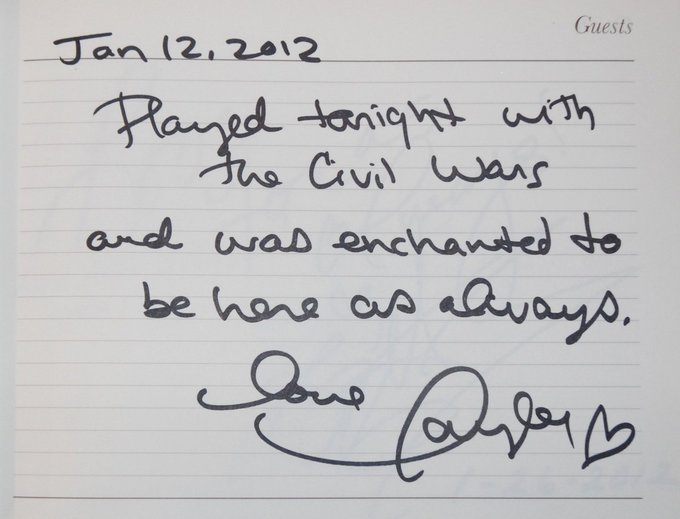 Guests
Jan 12, 2012
Played tonight with
the Civil Wars
and was enchanted to
be here as always.
Love Taylor